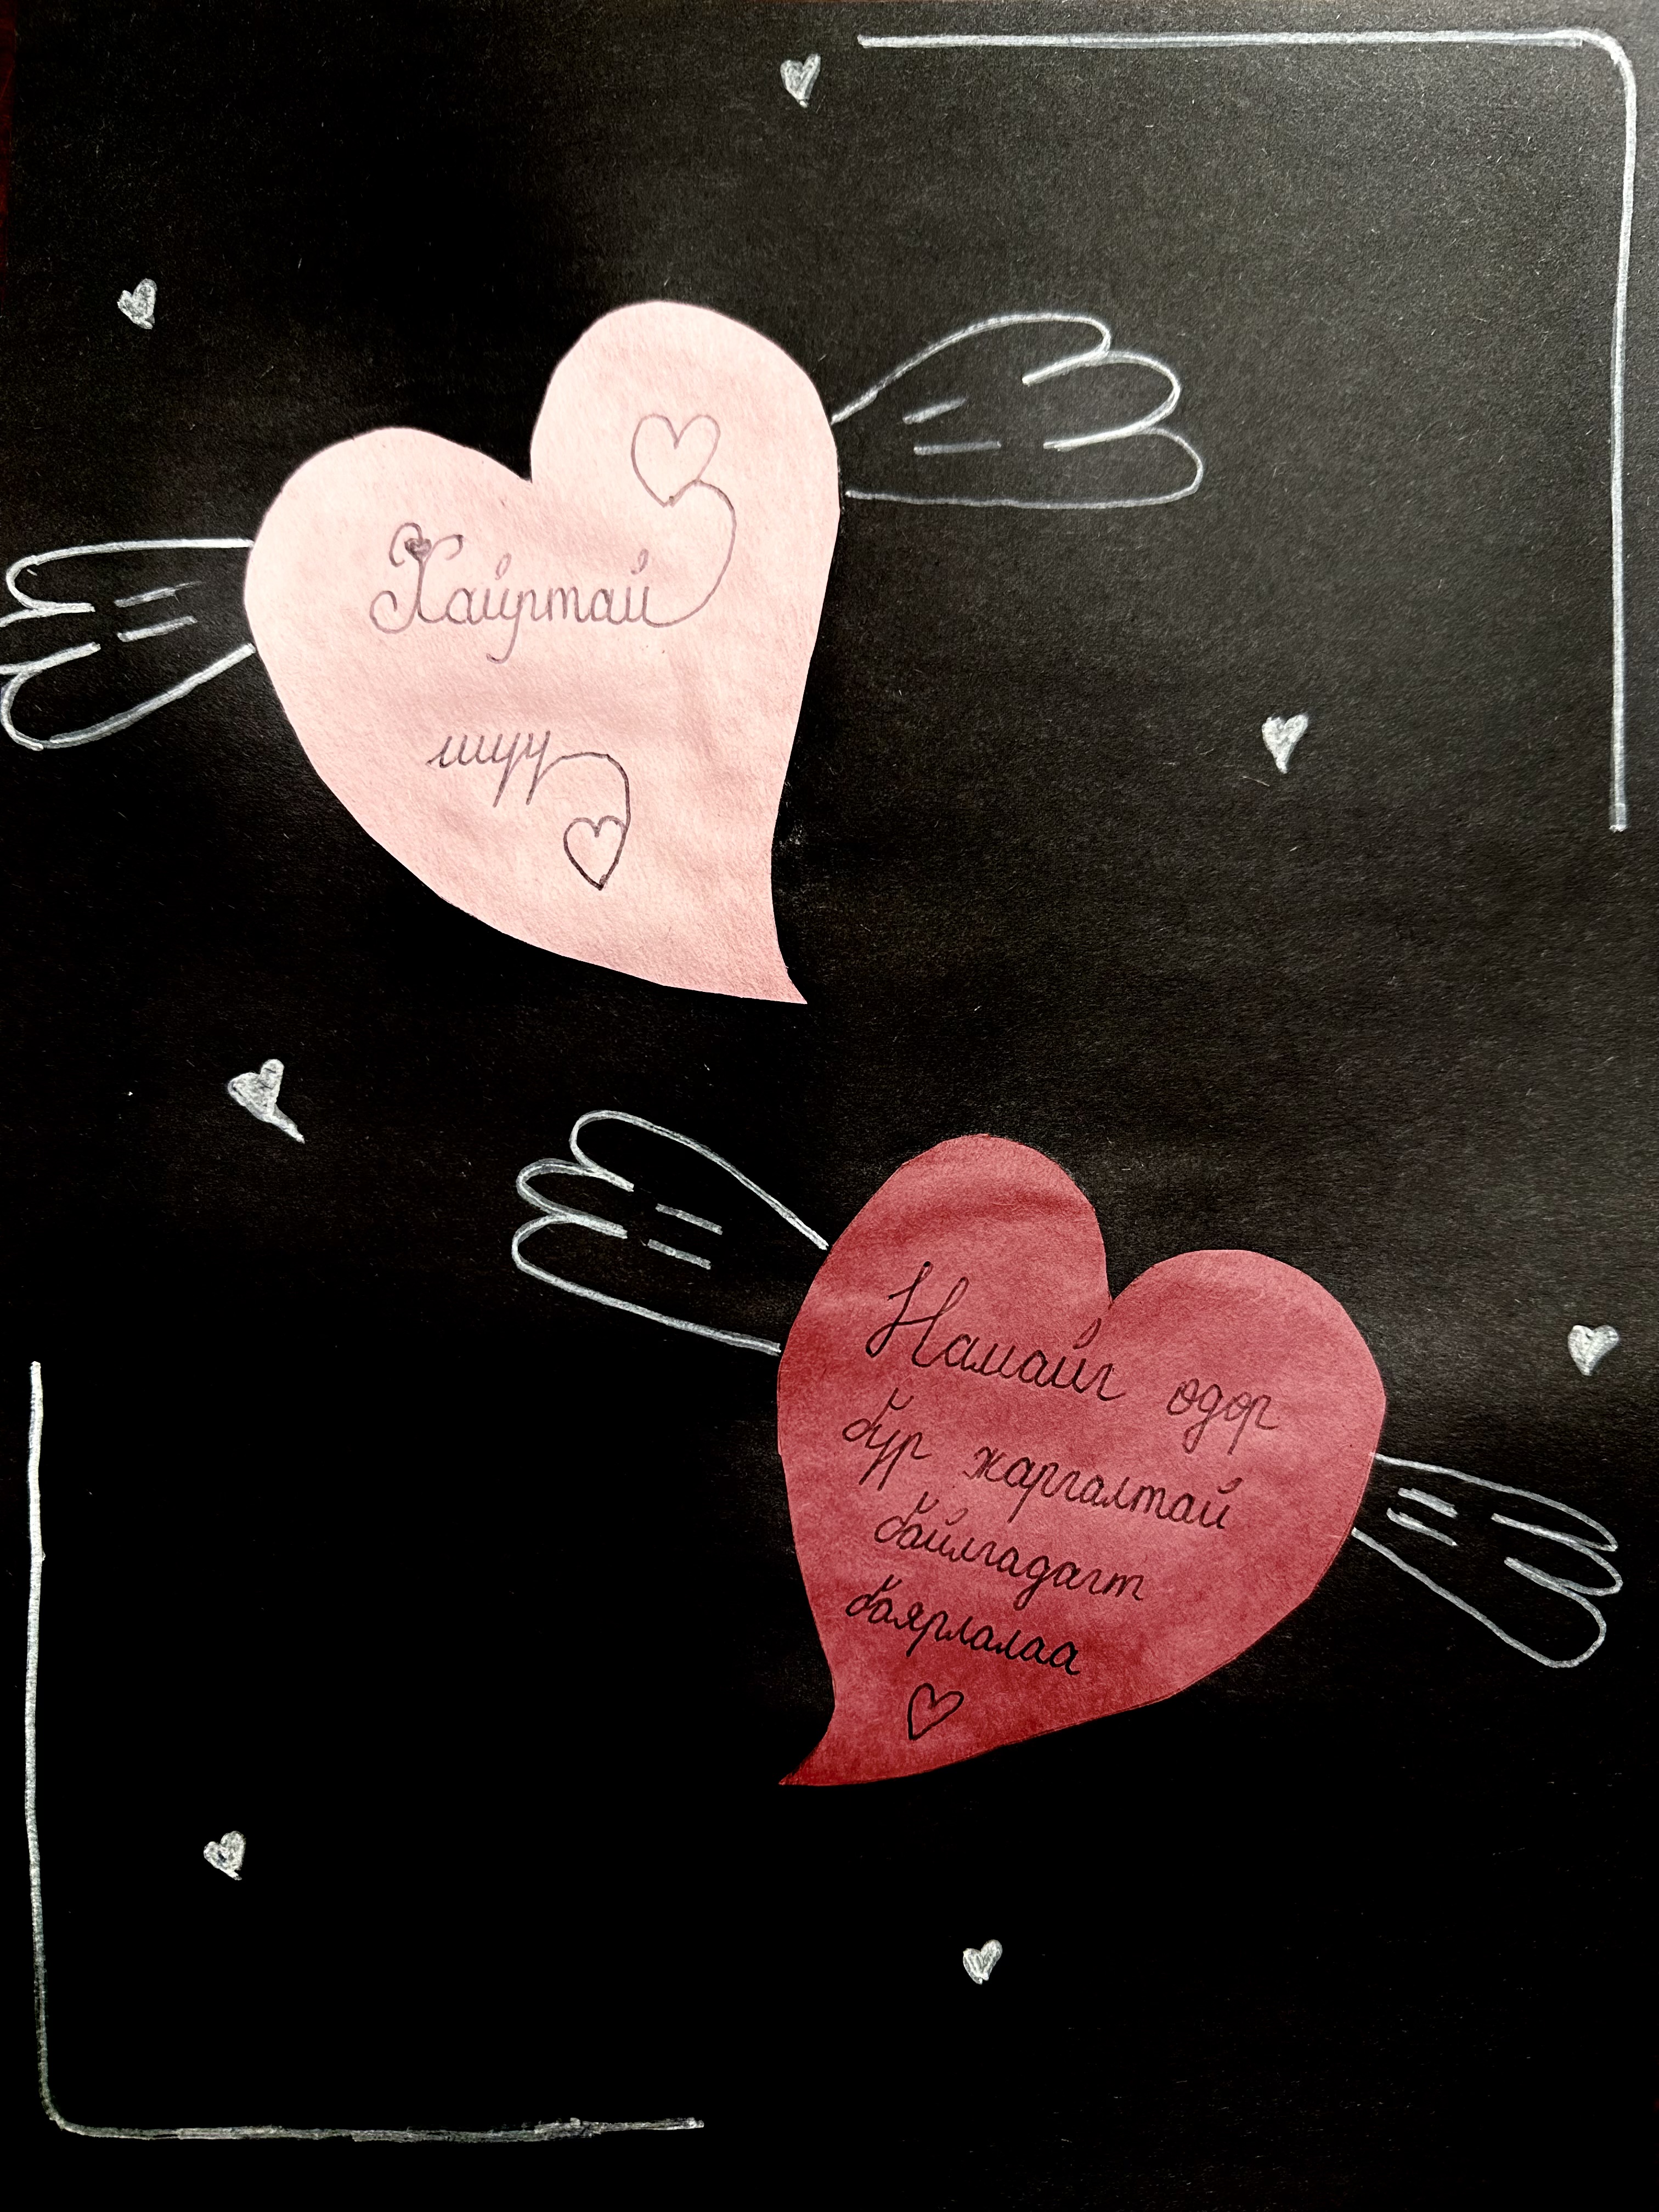 Хайртай
шүү
Намайг өдөр
бүр жаргалтай
байлгадагт
баярлалаа